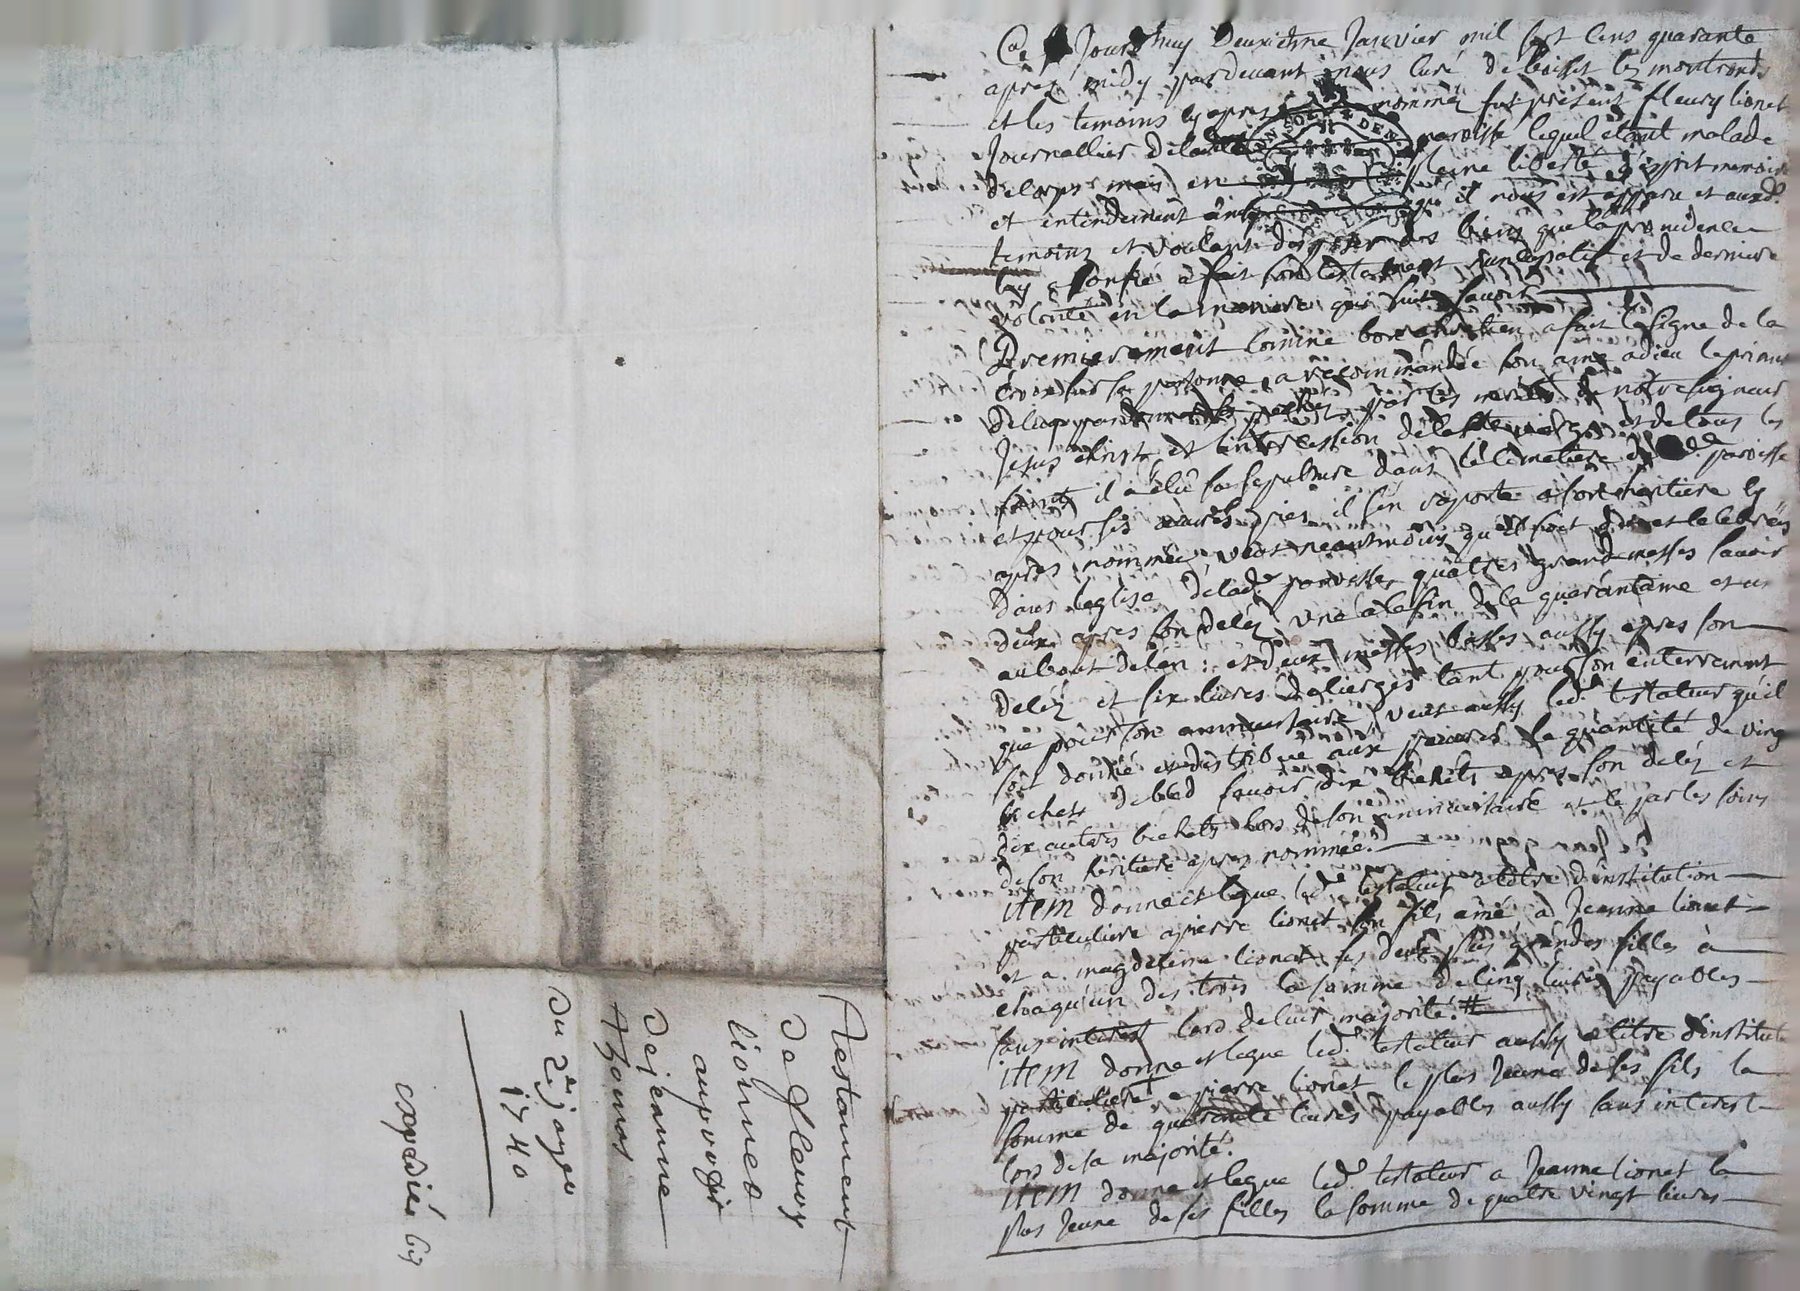 Ce Jourdhuy Deuxiesme Janvier mil sept cens quarante
apres midy pardevant nous curé de boisset les montrond
et les temoins cy apres nommés fut present fleury lionet
Journallier de lad paroisse lequel étant malade
de corps mais en pleine liberté d'esprit memoire
et entendement ainsy qu'il nous est apparu et auxd.
temoins et voulant disposer des biens que la providence
luy a confié a fait son testament nuncupatif et de derniere
volonté en la maniere qui suit savoir
Premierement comme bon chretien a fait le signe de la
croix sur sa personne a recommandée son ame a dieu le priant
de luy pardonner ses pechez par les merites de notre seigneur
Jesus christ et l'intercession de la ste vierge et de tous les
saints il a élu sa sepulture dans le cimetiere de lad.e paroisse
et pour ses œuvres pies il s'en raporte a son heritiere cy
apres nommée, veut neantmoins qu'il soit dit et celebrés
dans leglise de lad.e paroisse quatres grand messes savoir
deux apres son deléz une a la fin de la quarantaine et une
au bout de l'an : et deux messes basses aussy apres son
deléz et six livres de cierges tant pour son enterrement
que pour son anniversaire, veut aussy led. testateur qu'il
soit donné et distribué aux pauvres la quantité de ving
bichets de bled savoir dix bichets apres son deléz et
dix autres bichets lors de son anniversaire et ce par les soins
de son heritiere apres nommée.
item donne et legue led. testateur a titre d'institution
particuliere a pierre lionet son fils ainé a Jeanne lionet
et a magdeleine lionet ses deux plus grandes filles à
chaqu'un des trois la somme de cinq livres payables
sans interest lors de leur majorité. #
item donne et legue led. testateur aussy a titre d'institut
particuliere a pierre lionet le plus Jeune de ses fils la
somme de quarante livres payables aussy sans interest
lors de sa majorité.
item donne et legue led. testateur a Jeanne lionet la
plus Jeune de ses filles la somme de quatre vingt livres
Testament
de fleury
lionnet
au profit
de jeanne
thomas
du 2e janer
1740
expedié